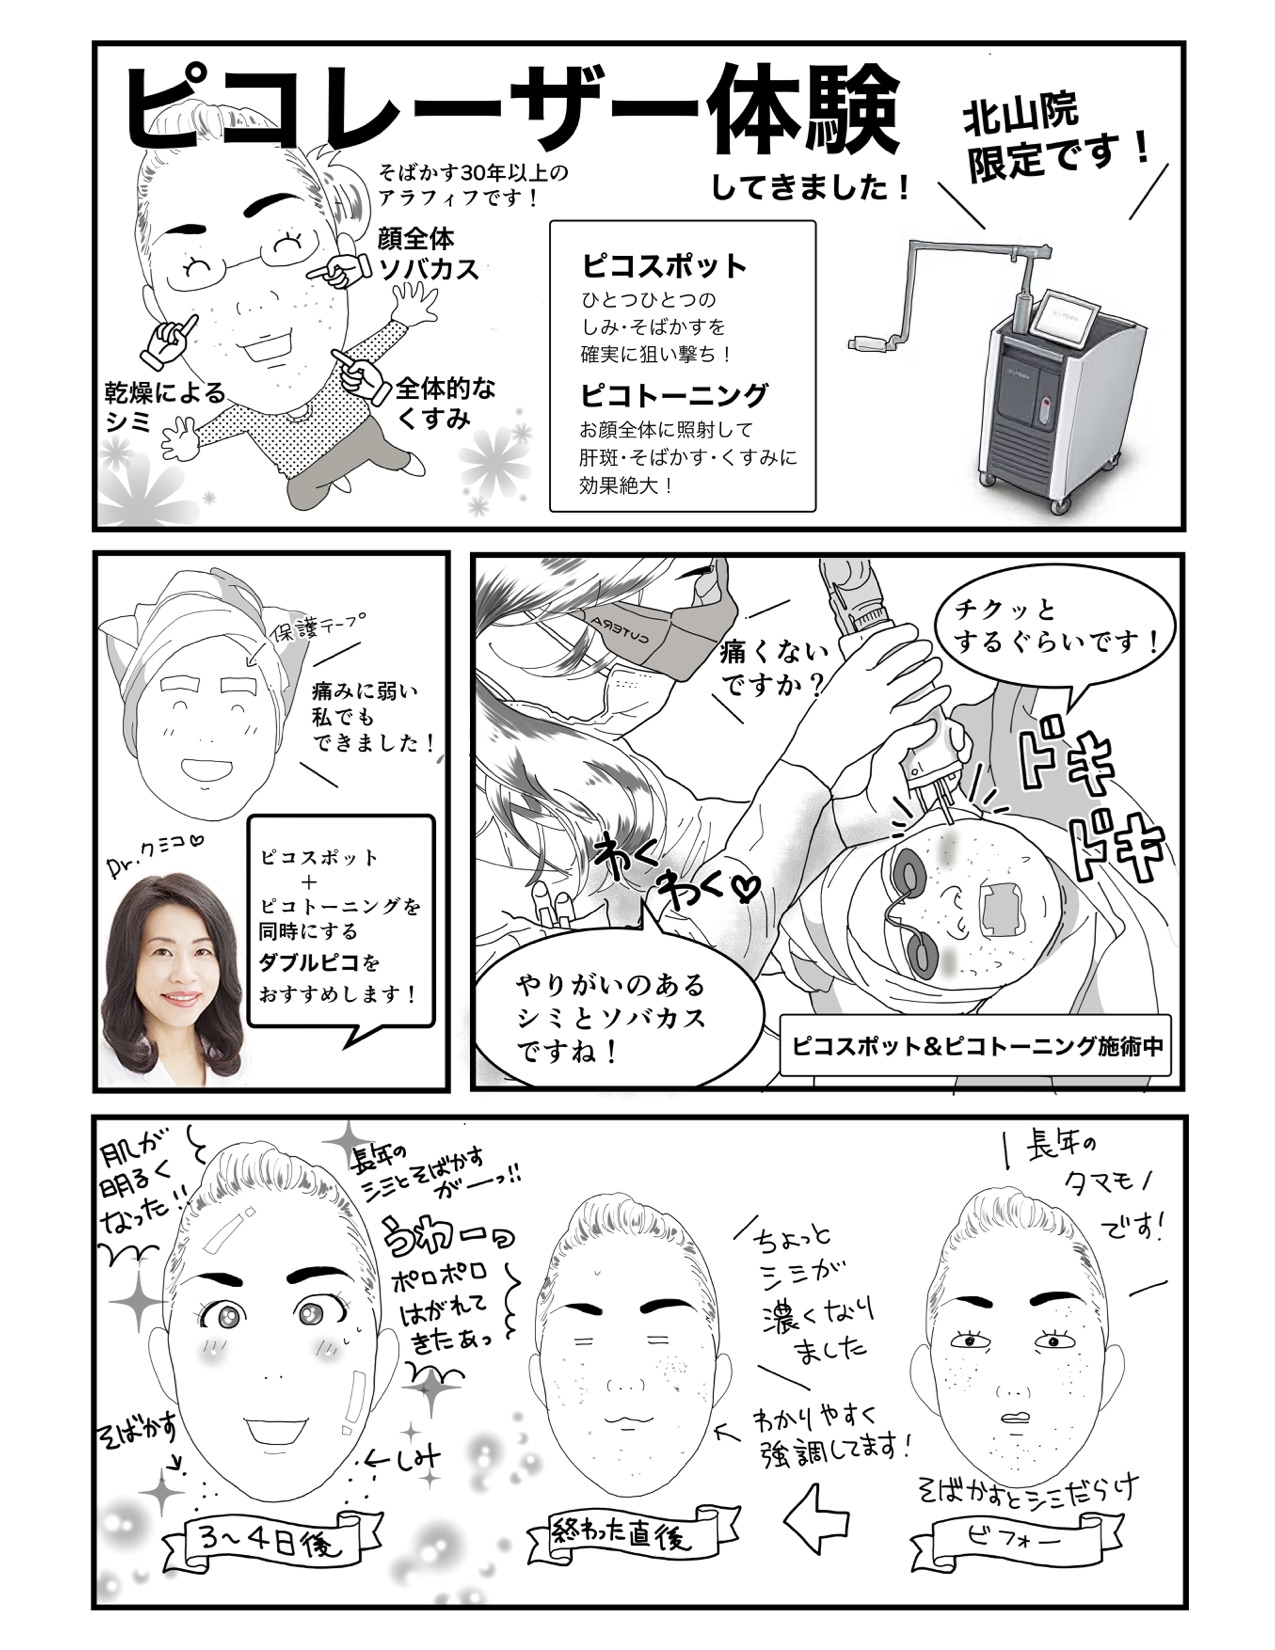 ピコレーザー体験
してきました！
北山院
限定です！
そばかす30年以上の
アラフィフです！
顔全体
ソバカス
乾燥による
シミ
全体的な
くすみ
ピコスポット
ひとつひとつの
しみ･そばかすを
確実に狙い撃ち！
ピコトーニング
お顔全体に照射して
肝斑･そばかす･くすみに
効果絶大！
保護テープ
痛みに弱い
私でも
できました！
Dr.クミコ♡
ピコスポット
＋
ピコトーニングを
同時にする
ダブルピコを
おすすめします！
CUTERA
痛くない
ですか？
チクッと
するぐらいです！
ドキ
ドキ
わく
わく♡
やりがいのある
シミとソバカス
ですね！
ピコスポット&ピコトーニング施術中
長年の
タマモノ
です!
そばかすとシミだらけ
ビフォー
ちょっと
シミが
濃くなり
ました
わかりやすく
強調してます!
終わった直後
長年の
シミとそばかす
がーっ!!
うわーっ
ポロポロ
はがれて
きたぁっ
肌が
明るく
なった!!
そばかす
しみ
3〜4日後